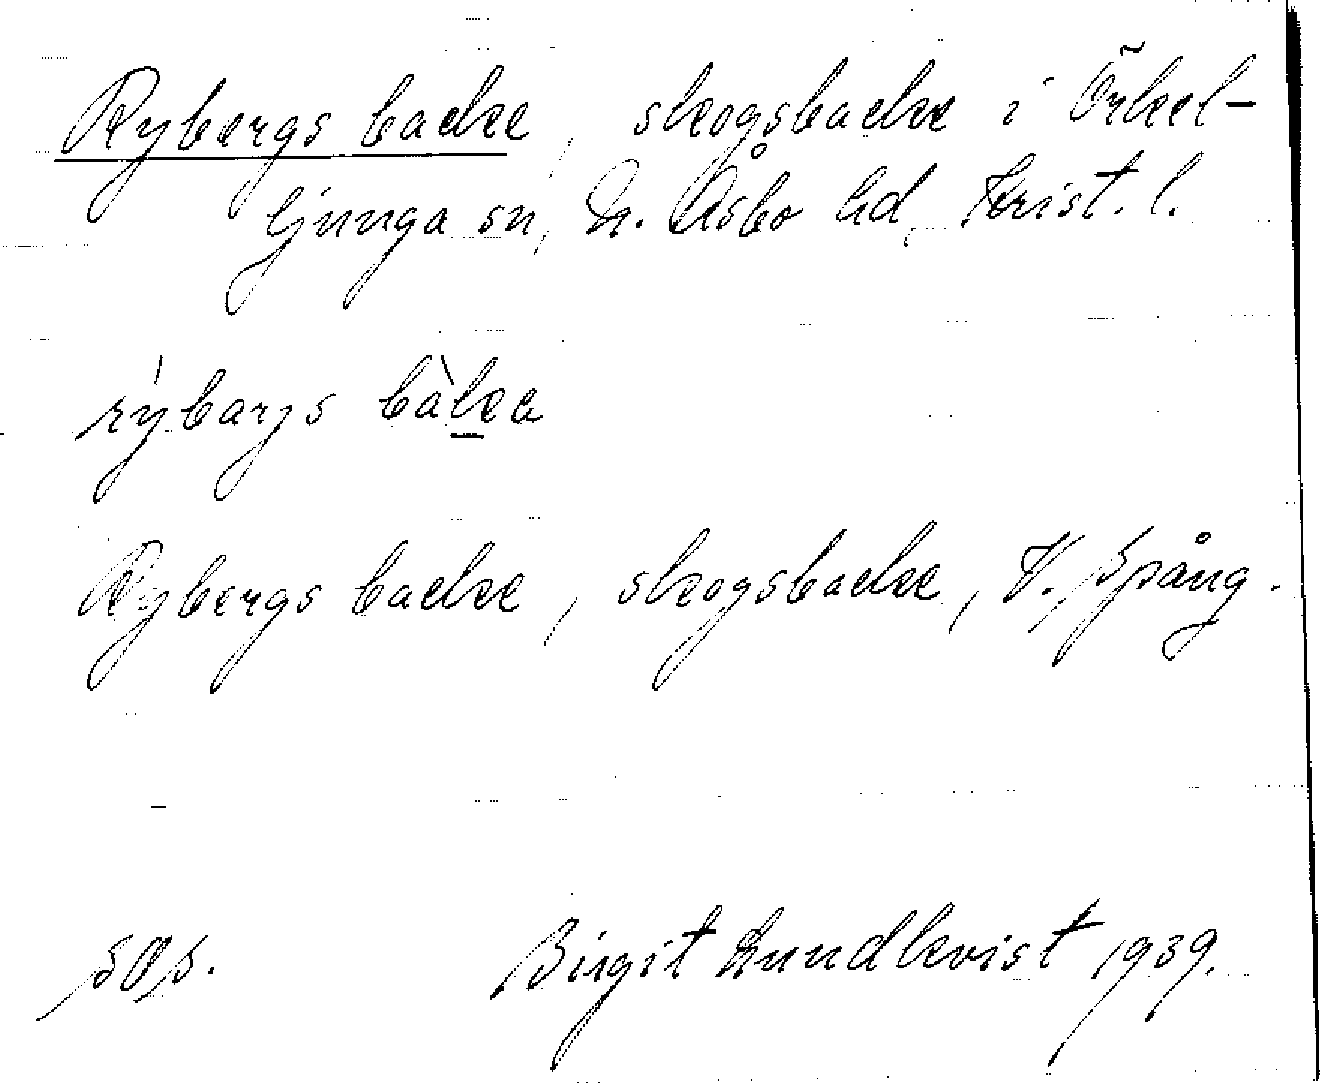 Rybergs backe, skogsbacke i Örkel-
ljunga sn, N. Åsbo hd, Krist. l.
rýbarjs bàka
Rybergs backe, skogsbacke, V. Spång.
SOS. Birgit Lundkvist 1939.